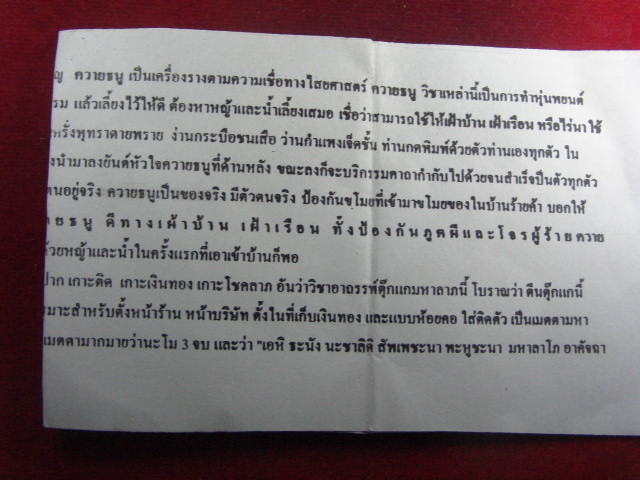 ควายธนู เป็นเครื่องรางตามความเชื่อทางไสยศาสตร์ ควายธนู วิชาเหล่านี้เป็นการทำหุ่นพยนต์
แล้วเลี้ยงไว้ให้ดี ต้องหาหญ้าและน้ำเลี้ยงเสมอ เชื่อว่าสามารถใช้ให้เฝ้าบ้าน เฝ้าเรือน หรือไร่นา ใช้
ครั่งพุทราตายพราย ง่านกระบือชนเสือ ว่านกำแพงเจ็ดชั้น ท่านกดพิมพ์ด้วยตัวท่านเองทุกตัว ใน
งนำมาลงยันต์หัวใจควายธนูที่ด้านหลัง ขณะลงก็จะบริกรรมคาถากำกับไปด้วยจนสำเร็จปืนตัวทุกตัว
ตนอยู่จริง ควายธนูเป็นของจริง มีตัวตนจริง ป้องกันขโมยที่เข้ามาขโมยของในบ้านร้ายค้า บอกให้
ายธนู ดีทางเฝ้าบ้าน เฝ้าเรือน ทั้งป้องกันภูตผีและโจรผู้ร้ายควาย
ด้วยหญ้าและน้ำในครั้งแรกที่เอาเข้าบ้านก็พอ
ปาก เกาะติด เกาะเงินทอง เกาะโชคลาภ อันว่าวิชาอาถรรพ์ตุ๊กแกมหาลาภนี้ โบราณว่า ตีนตุ๊กแกนี้
มาะสำหรับตั้งหน้าร้าน หน้าบริษัท ตั้งในที่เก็บเงินทอง และแบบห้อยคอ ใส่ติดตัว เป็นเมตตามหา
เมตตามากมายว่านะโม 3 จบ และว่า "เอหิ ธะนัง นะชาลิติ สัพเพชะนา พะหูชะนา มหาลาโภ อาคัจฉา